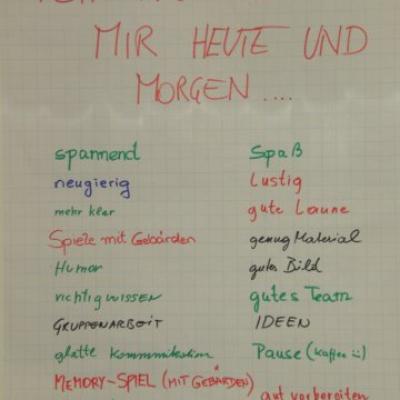 MIR HEUTE UND
MORGEN ....
spannend
neugierig
mehr klar
Spiele mit Gebärden
Humor
richtig wissen
GRUPPENARBEIT
glatte Kommunikation
MEMORY-SPIEL (MIT GEBÄRDEN)
Spaß
Lustig
gute Laune
genug Material
gutes Bild
gutes Team
IDEEN
Pause (Kaffee :-)
gut vorbereiten